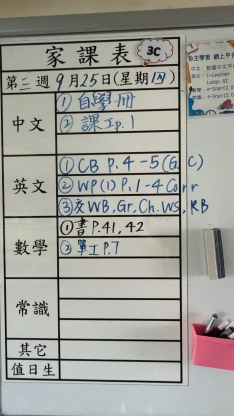 家課表
3C
第三週9月25日(星期四)
中文
①自學冊
②課工p.1
英文
①CB P.4-5(G,C)
②WP(1)P.1-4 Corr
③交WB,Gr,Ch.WS,RB
數學
①書P.41,42
②單工P.7
常識
其它
值日生
自主學習 網上平台